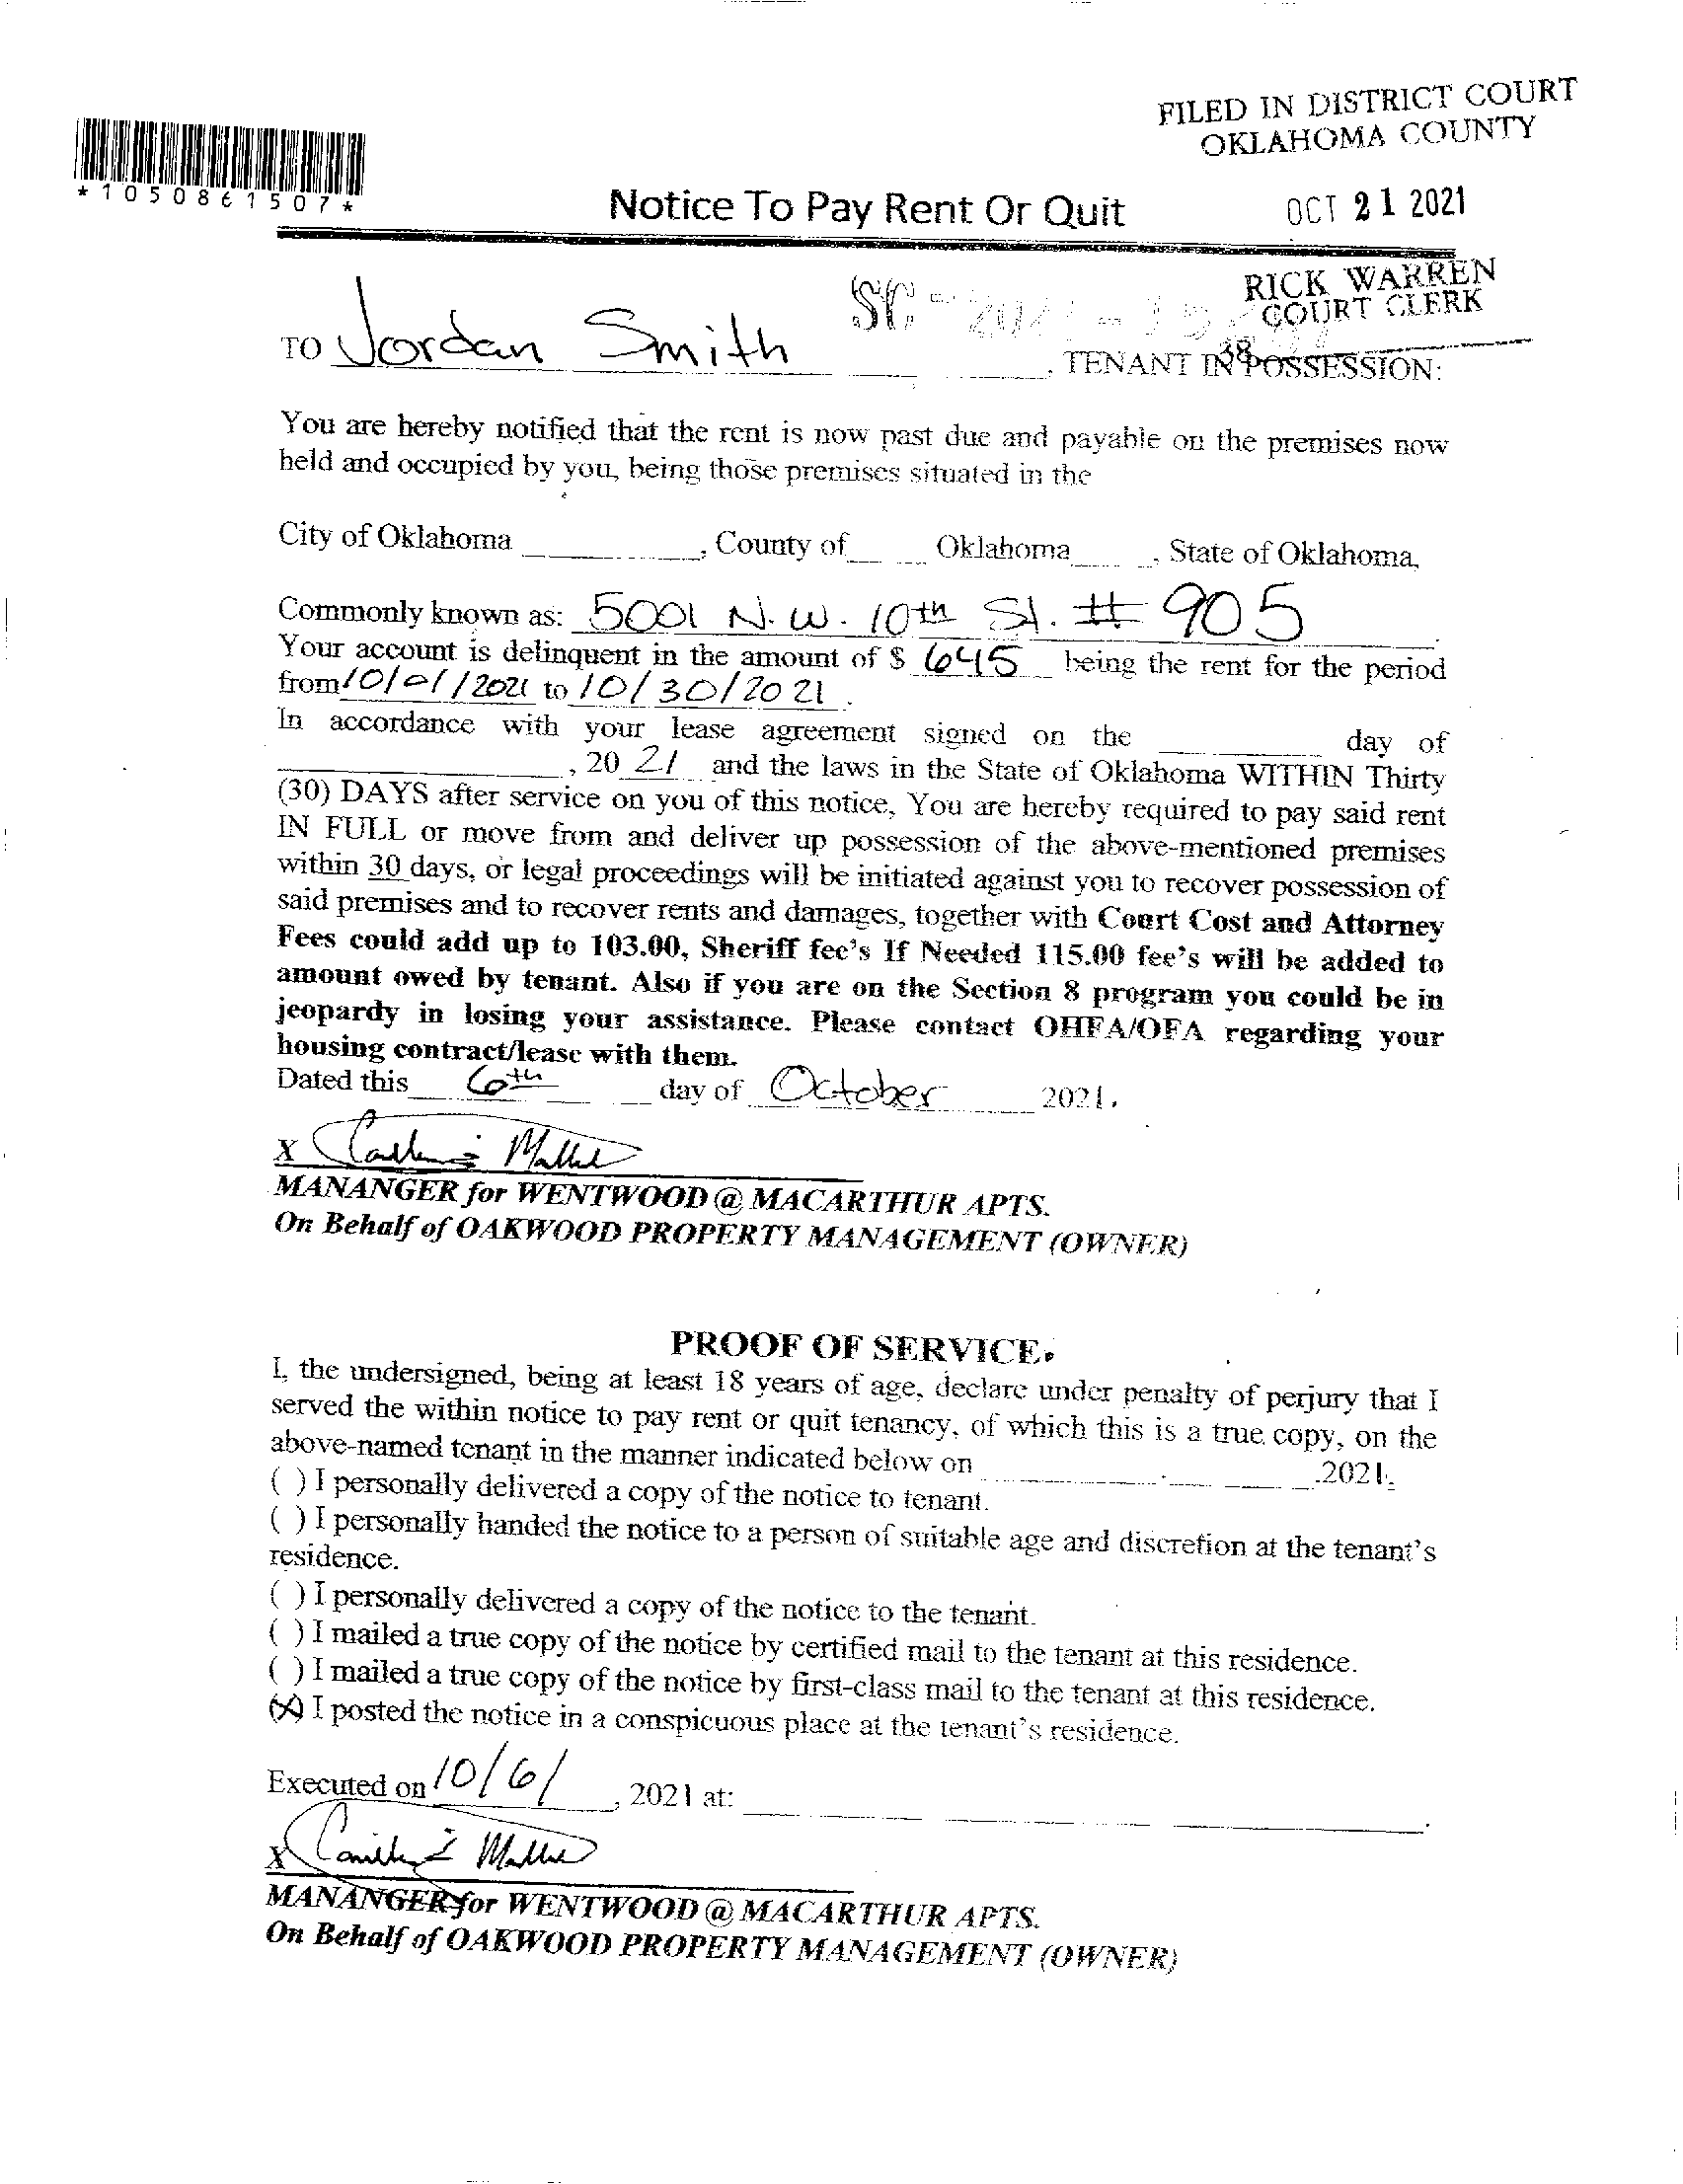 FILED IN DISTRICT COURT
OKLAHOMA COUNTY
*1050861507*
Notice To Pay Rent Or Quit
OCT 21 2021
RICK WARREN
COURT CLERK
SC-
38
TO Jordan Smith, TENANT IN POSSESSION:
You are hereby notified that the rent is now past due and payable on the premises now
held and occupied by you, being those premises situated in the
City of Oklahoma, County of Oklahoma, State of Oklahoma,
Commonly known as: 5001 N.W. 10th St. # 905.
Your account is delinquent in the amount of $ 645 being the rent for the period
from 10/01/2021 to 10/30/2021.
In accordance with your lease agreement signed on the ______ day of
______, 20 21 and the laws in the State of Oklahoma WITHIN Thirty
(30) DAYS after service on you of this notice, You are hereby required to pay said rent
IN FULL or move from and deliver up possession of the above-mentioned premises
within 30 days, or legal proceedings will be initiated against you to recover possession of
said premises and to recover rents and damages, together with Court Cost and Attorney
Fees could add up to 103.00, Sheriff fee's If Needed 115.00 fee's will be added to
amount owed by tenant. Also if you are on the Section 8 program you could be in
jeopardy in losing your assistance. Please contact OHFA/OFA regarding your
housing contract/lease with them.
Dated this 6th day of October 2021.
X
MANANGER for WENTWOOD @ MACARTHUR APTS.
On Behalf of OAKWOOD PROPERTY MANAGEMENT (OWNER)
PROOF OF SERVICE.
I, the undersigned, being at least 18 years of age, declare under penalty of perjury that I
served the within notice to pay rent or quit tenancy, of which this is a true copy, on the
above-named tenant in the manner indicated below on ______.2021.
( ) I personally delivered a copy of the notice to tenant.
( ) I personally handed the notice to a person of suitable age and discretion at the tenant's
residence.
( ) I personally delivered a copy of the notice to the tenant.
( ) I mailed a true copy of the notice by certified mail to the tenant at this residence.
( ) I mailed a true copy of the notice by first-class mail to the tenant at this residence.
(X) I posted the notice in a conspicuous place at the tenant's residence.
Executed on 10/6/, 2021 at: ______.
X
MANANGER for WENTWOOD @ MACARTHUR APTS.
On Behalf of OAKWOOD PROPERTY MANAGEMENT (OWNER)